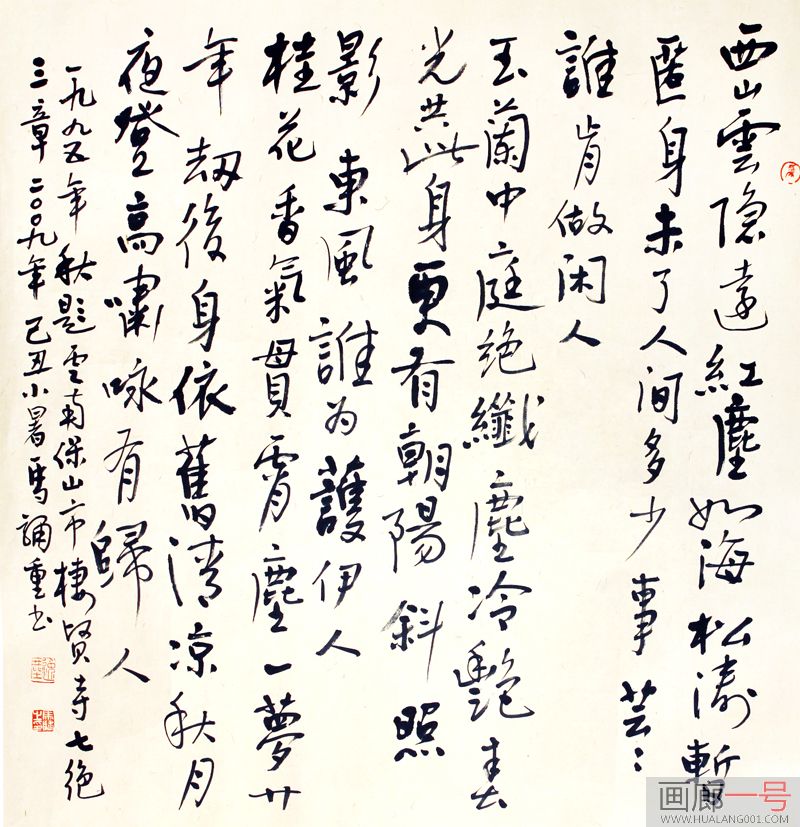 西山雲隐遠紅塵如海松濤暫
匿身未了人间多少事芸〻
誰肯做闲人
玉蘭中庭绝纖塵冷艷春
光共此身更有朝陽斜照
影東風誰为護伊人
桂花香氣貫霄塵一夢廿
年劫後身依舊清凉秋月
夜登高嘯咏有歸人
一九九五年秋题云南保山市棲贤寺七绝
三章二〇〇九年己丑小暑馬誦重书
画廊一号
WWW.HUALANG001.COM